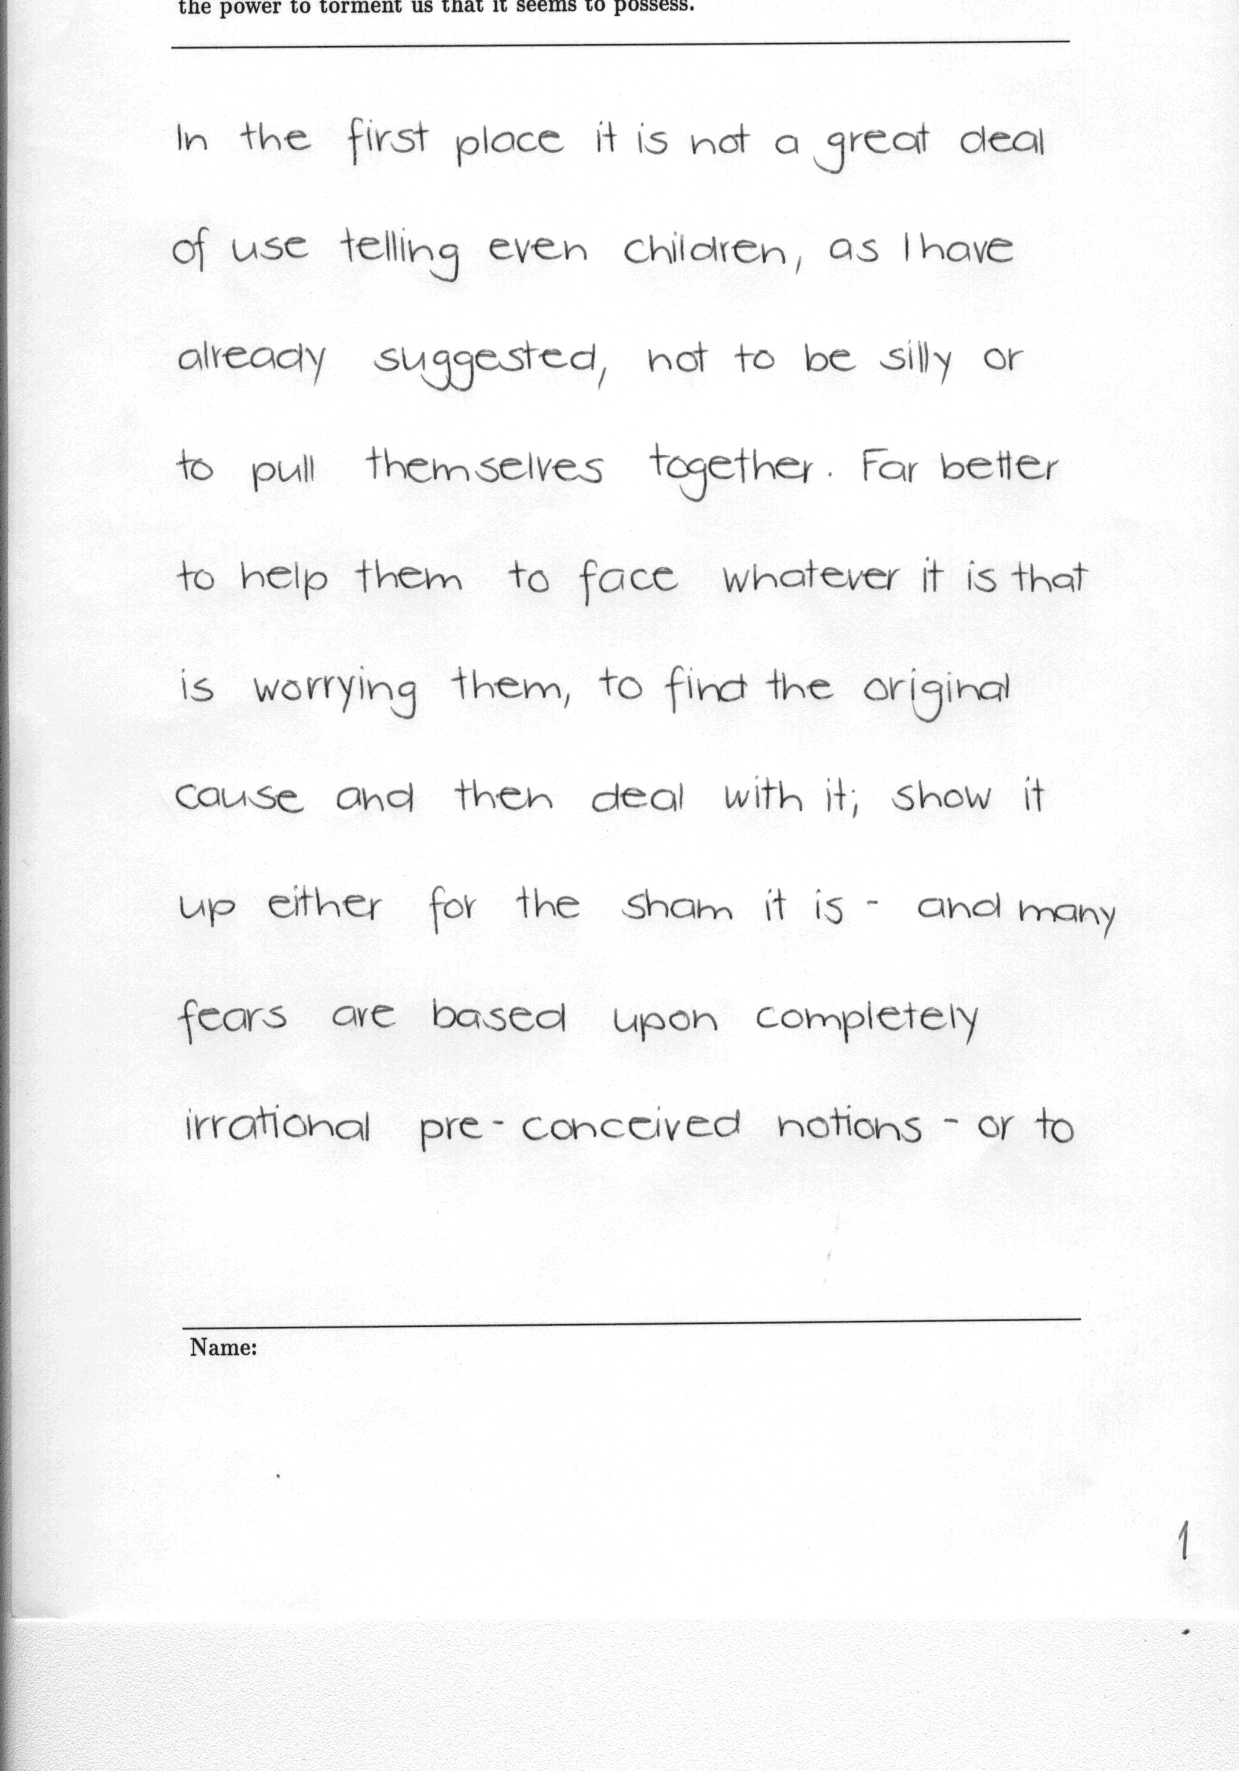 the power to torment us that it seems to possess.
In the first place it is not a great deal
of use telling even children, as I have
already suggested, not to be silly or
to pull themselves together. Far better
to help them to face whatever it is that
is worrying them, to find the original
cause and then deal with it; show it
up either for the sham it is - and many
fears are based upon completely
irrational pre-conceived notions - or to
Name:
1